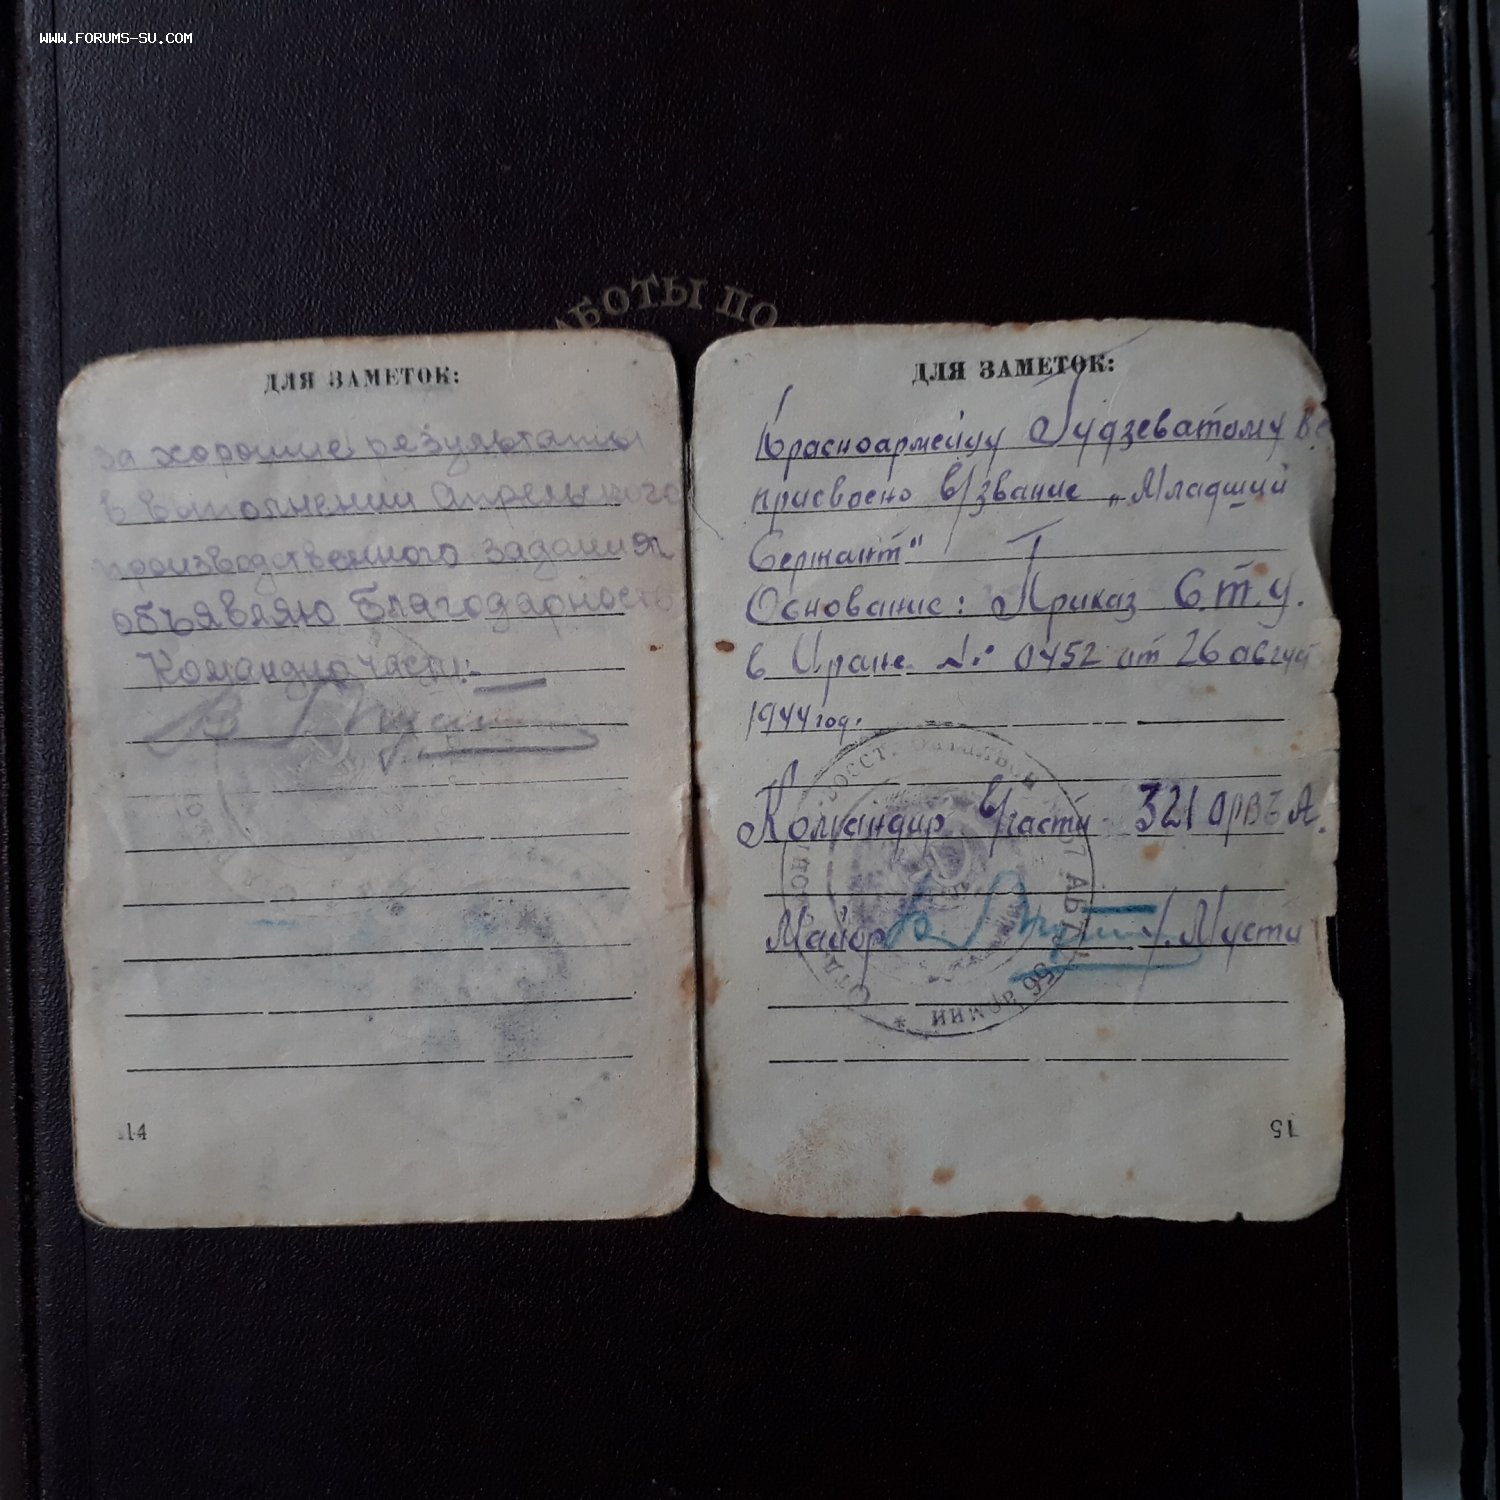 www.FORUMS-SU.COM
АБОТЫ ПО
ДЛЯ ЗАМЕТОК:
за хорошие результаты
в выполнении апрельского
производственного задания
объявляю благодарность
Командир части:
14
ДЛЯ ЗАМЕТОК:
Красноармейцу Гудзеватому
присвоено в/звание „Младший
Сержант"
Основание: Приказ С.т.у.
в Иране № 0452 от 26 август
1944 год.
Командир в/части 321 ОРВБ А.
Майор
15
56 армии